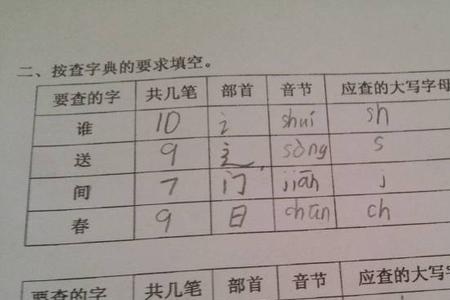 二、按查字典的要求填空。
要查的字 共几笔 部首 音节 应查的大写字母
谁 10 讠 shuí sh
送 9 辶 sòng s
间 7 门 jiān j
春 9 日 chūn ch
要查的字 共几笔 部首 音节 应查的大写